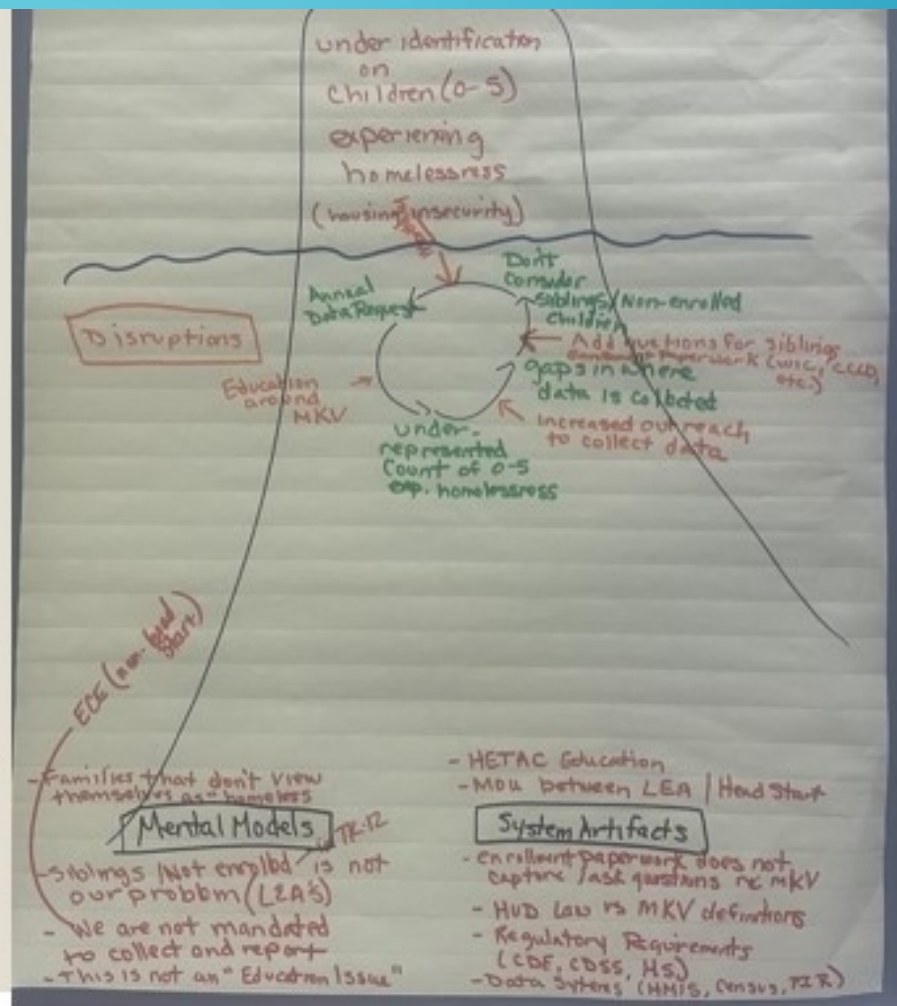 under identification
on
Children (0-5)
experiening
homelessness
(housing insecurity)
Don't
Consider
Siblings/Non-enrolled
Children
Annual
Data Request
Disruptions
Add qustions for siblings
Paperwork (WIC, CCCD,
etc.)
gaps in where
data is collected
Education
around
MKV
increased outreach
to collect data
under-
represented
Count of 0-5
exp. homelessness
ECE (non-head
Start)
- Families that don't view
themselves as "homeless"
Mental Models
TK-12
- Siblings/Not enrolled is not
our problem (LEA's)
- We are not mandated
to collect and report
- This is not an "Education Issue"
- HETAC Education
- MOU between LEA/Head Start
System Artifacts
- enrollment paperwork does not
capture/ask questions re MKV
- HUD Law vs MKV definitions
- Regulatory Requirements
(CDE, CDSS, HS)
- Data Systems (HMIS, Census, PIR)